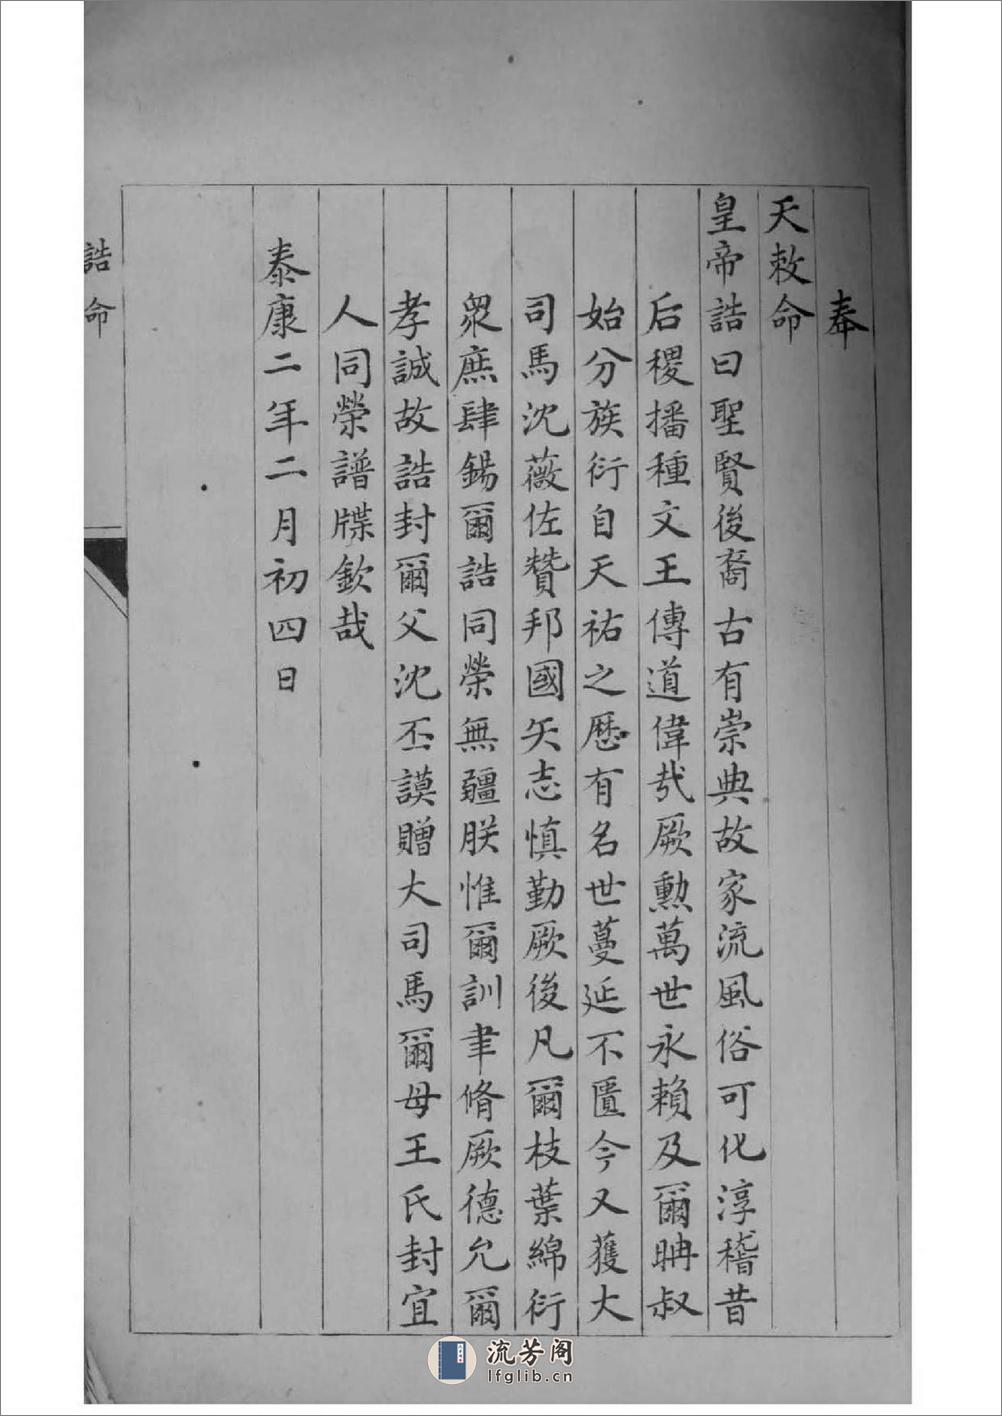 奉
天敕命
皇帝誥曰聖賢後裔古有崇典故家流風俗可化淳稽昔
后稷播種文王傳道偉哉厥勲萬世永賴及爾聃叔
始分族衍自天祐之歷有名世蔓延不匱今又獲大
司馬沈薇佐贊邦國矢志慎勤厥後凡爾枝葉綿衍
衆庶肆錫爾誥同榮無疆朕惟爾訓聿脩厥德允爾
孝誠故誥封爾父沈丕謨贈大司馬爾母王氏封宜
人同榮譜牒欽哉
泰康二年二月初四日
誥命
流芳阁
lfglib.cn